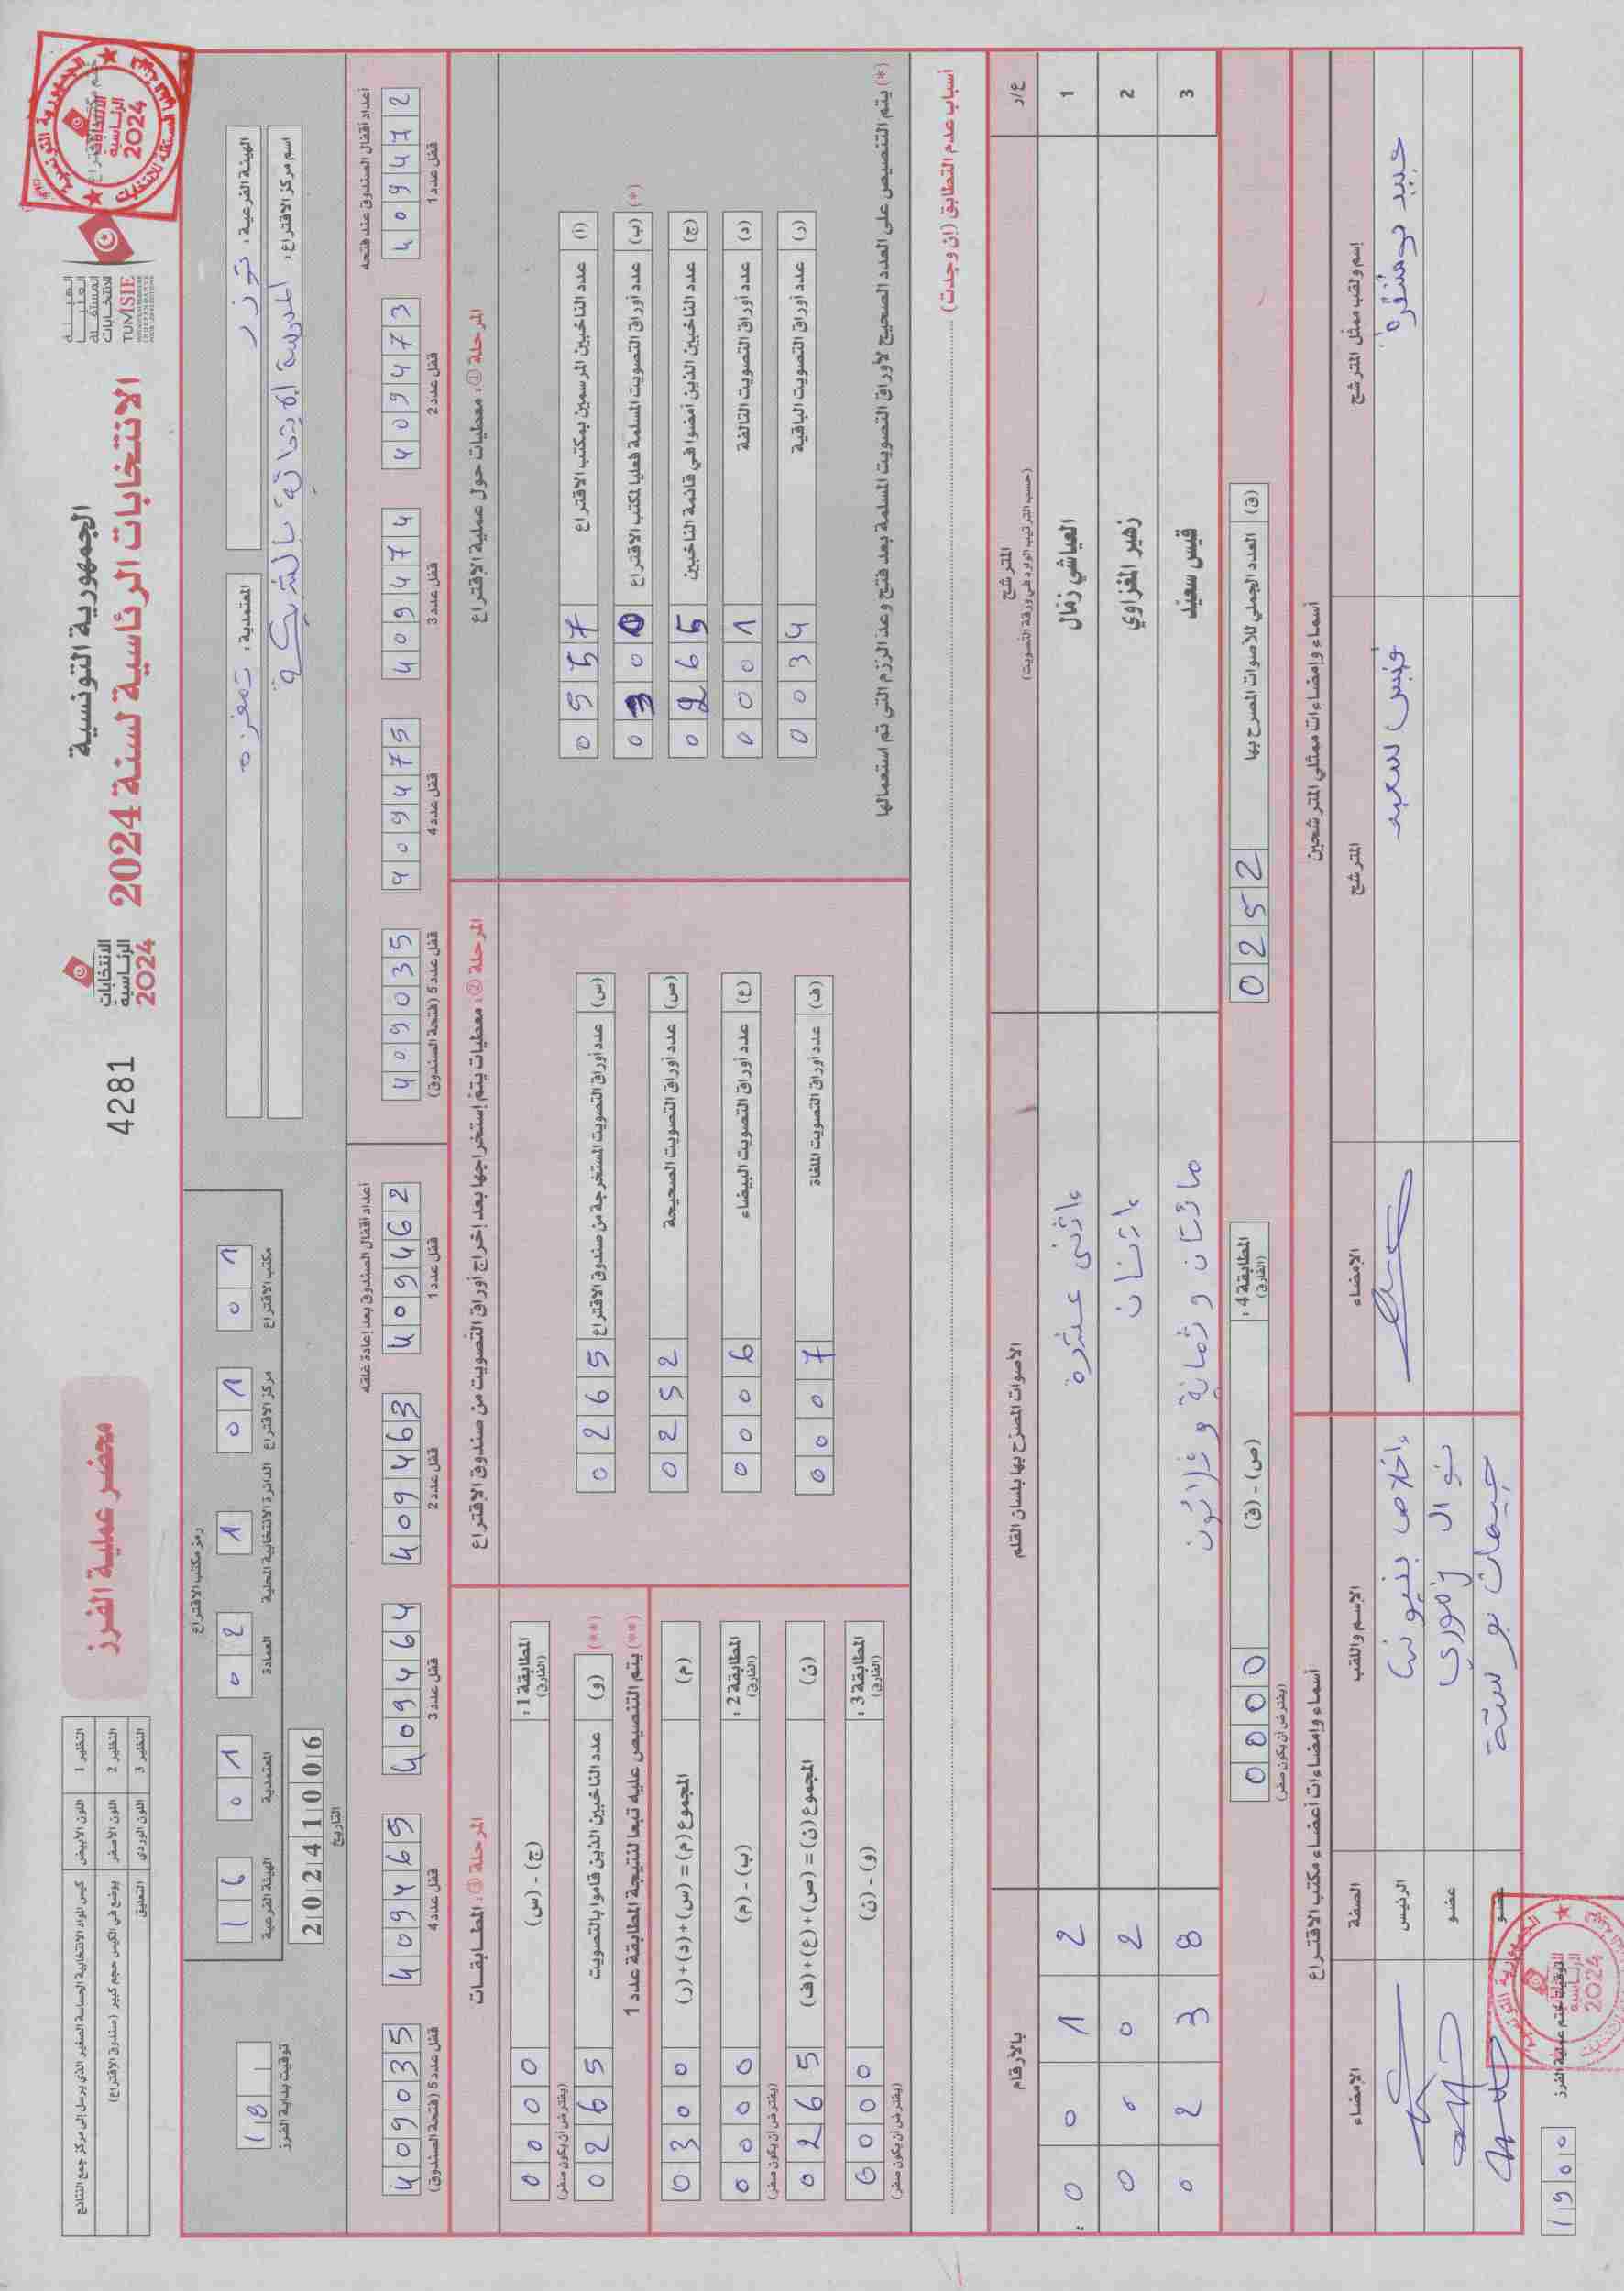 الجمهورية التونسية
الانتخابات الرئاسية لسنة 2024
الهيئة
العليا
المستقلة
للانتخابات
TUNISIE
الانتخابات
الرئاسية
2024
4281
محضر عملية الفرز
النظير 1 اللون الأبيض كيس المواد الانتخابية الحساسة الصغير الذي يرسل إلى مركز جمع النتائج
النظير 2 اللون الأصفر يوضع في الكيس حجم كبير (صندوق الاقتراع)
النظير 3 اللون الوردي التعليق
الهيئة الفرعية: توزر
المعتمدية: تمغزة
اسم مركز الاقتراع: المدرسة الابتدائية بالشبيكة
رمز مكتب الاقتراع
16 01 02 1 01 01
الهيئة الفرعية المعتمدية العمادة الدائرة الانتخابية المحلية مركز الاقتراع مكتب الاقتراع
20241006
التاريخ
18
توقيت بداية الفرز
أعداد أقفال الصندوق عند فتحه
4094472 4094473 4094474 4094475 4099035
قفل عدد 1 قفل عدد 2 قفل عدد 3 قفل عدد 4 قفل عدد 5 (فتحة الصندوق)
أعداد أقفال الصندوق بعد إعادة غلقه
4094462 4094463 4094464 4094465 4099035
قفل عدد 1 قفل عدد 2 قفل عدد 3 قفل عدد 4 قفل عدد 5 (فتحة الصندوق)
المرحلة ①: معطيات حول عملية الإقتراع
(أ) عدد الناخبين المرسمين بمكتب الاقتراع 0557
(*) (ب) عدد أوراق التصويت المسلمة فعليا لمكتب الاقتراع 0300
(ج) عدد الناخبين الذين أمضوا في قائمة الناخبين 0265
(د) عدد أوراق التصويت التالفة 0001
(ر) عدد أوراق التصويت الباقية 0034
(*) يتم التنصيص على العدد الصحيح لأوراق التصويت المسلمة بعد فتح وعدّ الرزم التي تم استعمالها
المرحلة ②: معطيات يتم إستخراجها بعد إخراج أوراق التصويت من صندوق الإقتراع
(س) عدد أوراق التصويت المستخرجة من صندوق الاقتراع 0265
(ص) عدد أوراق التصويت الصحيحة 0252
(ع) عدد أوراق التصويت البيضاء 0006
(ف) عدد أوراق التصويت الملغاة 0007
المرحلة ③: المطابقات
المطابقة 1: (الفارق) (ج) - (س) 0000
(يفترض أن يكون صفر)
(**) (و) عدد الناخبين الذين قاموا بالتصويت 0265
(**) يتم التنصيص عليه تبعا لنتيجة المطابقة عدد 1
(م) المجموع (م) = (س)+(د)+(ر) 0300
المطابقة 2: (الفارق) (ب) - (م) 0000
(يفترض أن يكون صفر)
(ن) المجموع (ن) = (ص)+(ع)+(ف) 0265
المطابقة 3: (الفارق) (و) - (ن) 0000
(يفترض أن يكون صفر)
أسباب عدم التطابق (إن وجدت)
ع/ر المترشح الأصوات المصرّح بها بلسان القلم بالأرقام
(حسب الترتيب الوارد في ورقة التصويت)
1 العياشي زمّال إثنى عشرة 0012
2 زهير المغزاوي إثنان 0002
3 قيس سعيّد مائتان و ثمانية و ثلاثون 0238
(ق) العدد الجملي للأصوات المصرح بها 0252
المطابقة 4: (الفارق) (ص) - (ق) 0000
(يفترض أن يكون صفر)
أسماء وإمضاءات ممثلي المترشحين
إسم ولقب ممثل المترشح المترشح الإمضاء
قيس سعيد
أسماء وإمضاءات أعضاء مكتب الاقتراع
الإسم واللقب الصفة الإمضاء
الرئيس
نوال زموري عضو
عضو
التوقيت بختم عملية الفرز 1900